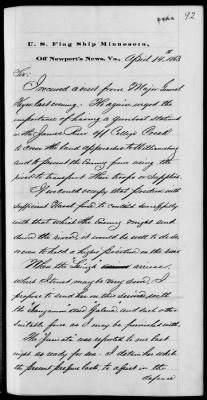 92
U. S. Flag Ship Minnesota,
Off Newport's News, Va., April 14th 1863
Sir:
I received a visit from Major Genl
Keyes last evening. He again urged the
importance of having a gunboat stationed
in the James River off College Creek
to cover the land approaches to Williamsburg
and to prevent the Enemy from using the
river to transport their troops or supplies.
I would occupy that position with
sufficient force to contend
with that which the Enemy might send
down the river, it would be well to do so
so as to hold a higher position in the river
When the "Sangamon" arrives,
which I trust, may be very soon, I
propose to send her on this service with
the and "Galena" and such other
suitable force as I may be furnished with
The "Juniata" was reported to me last
night as ready for sea. I detain her while
the present prepare both to affect in the
defence